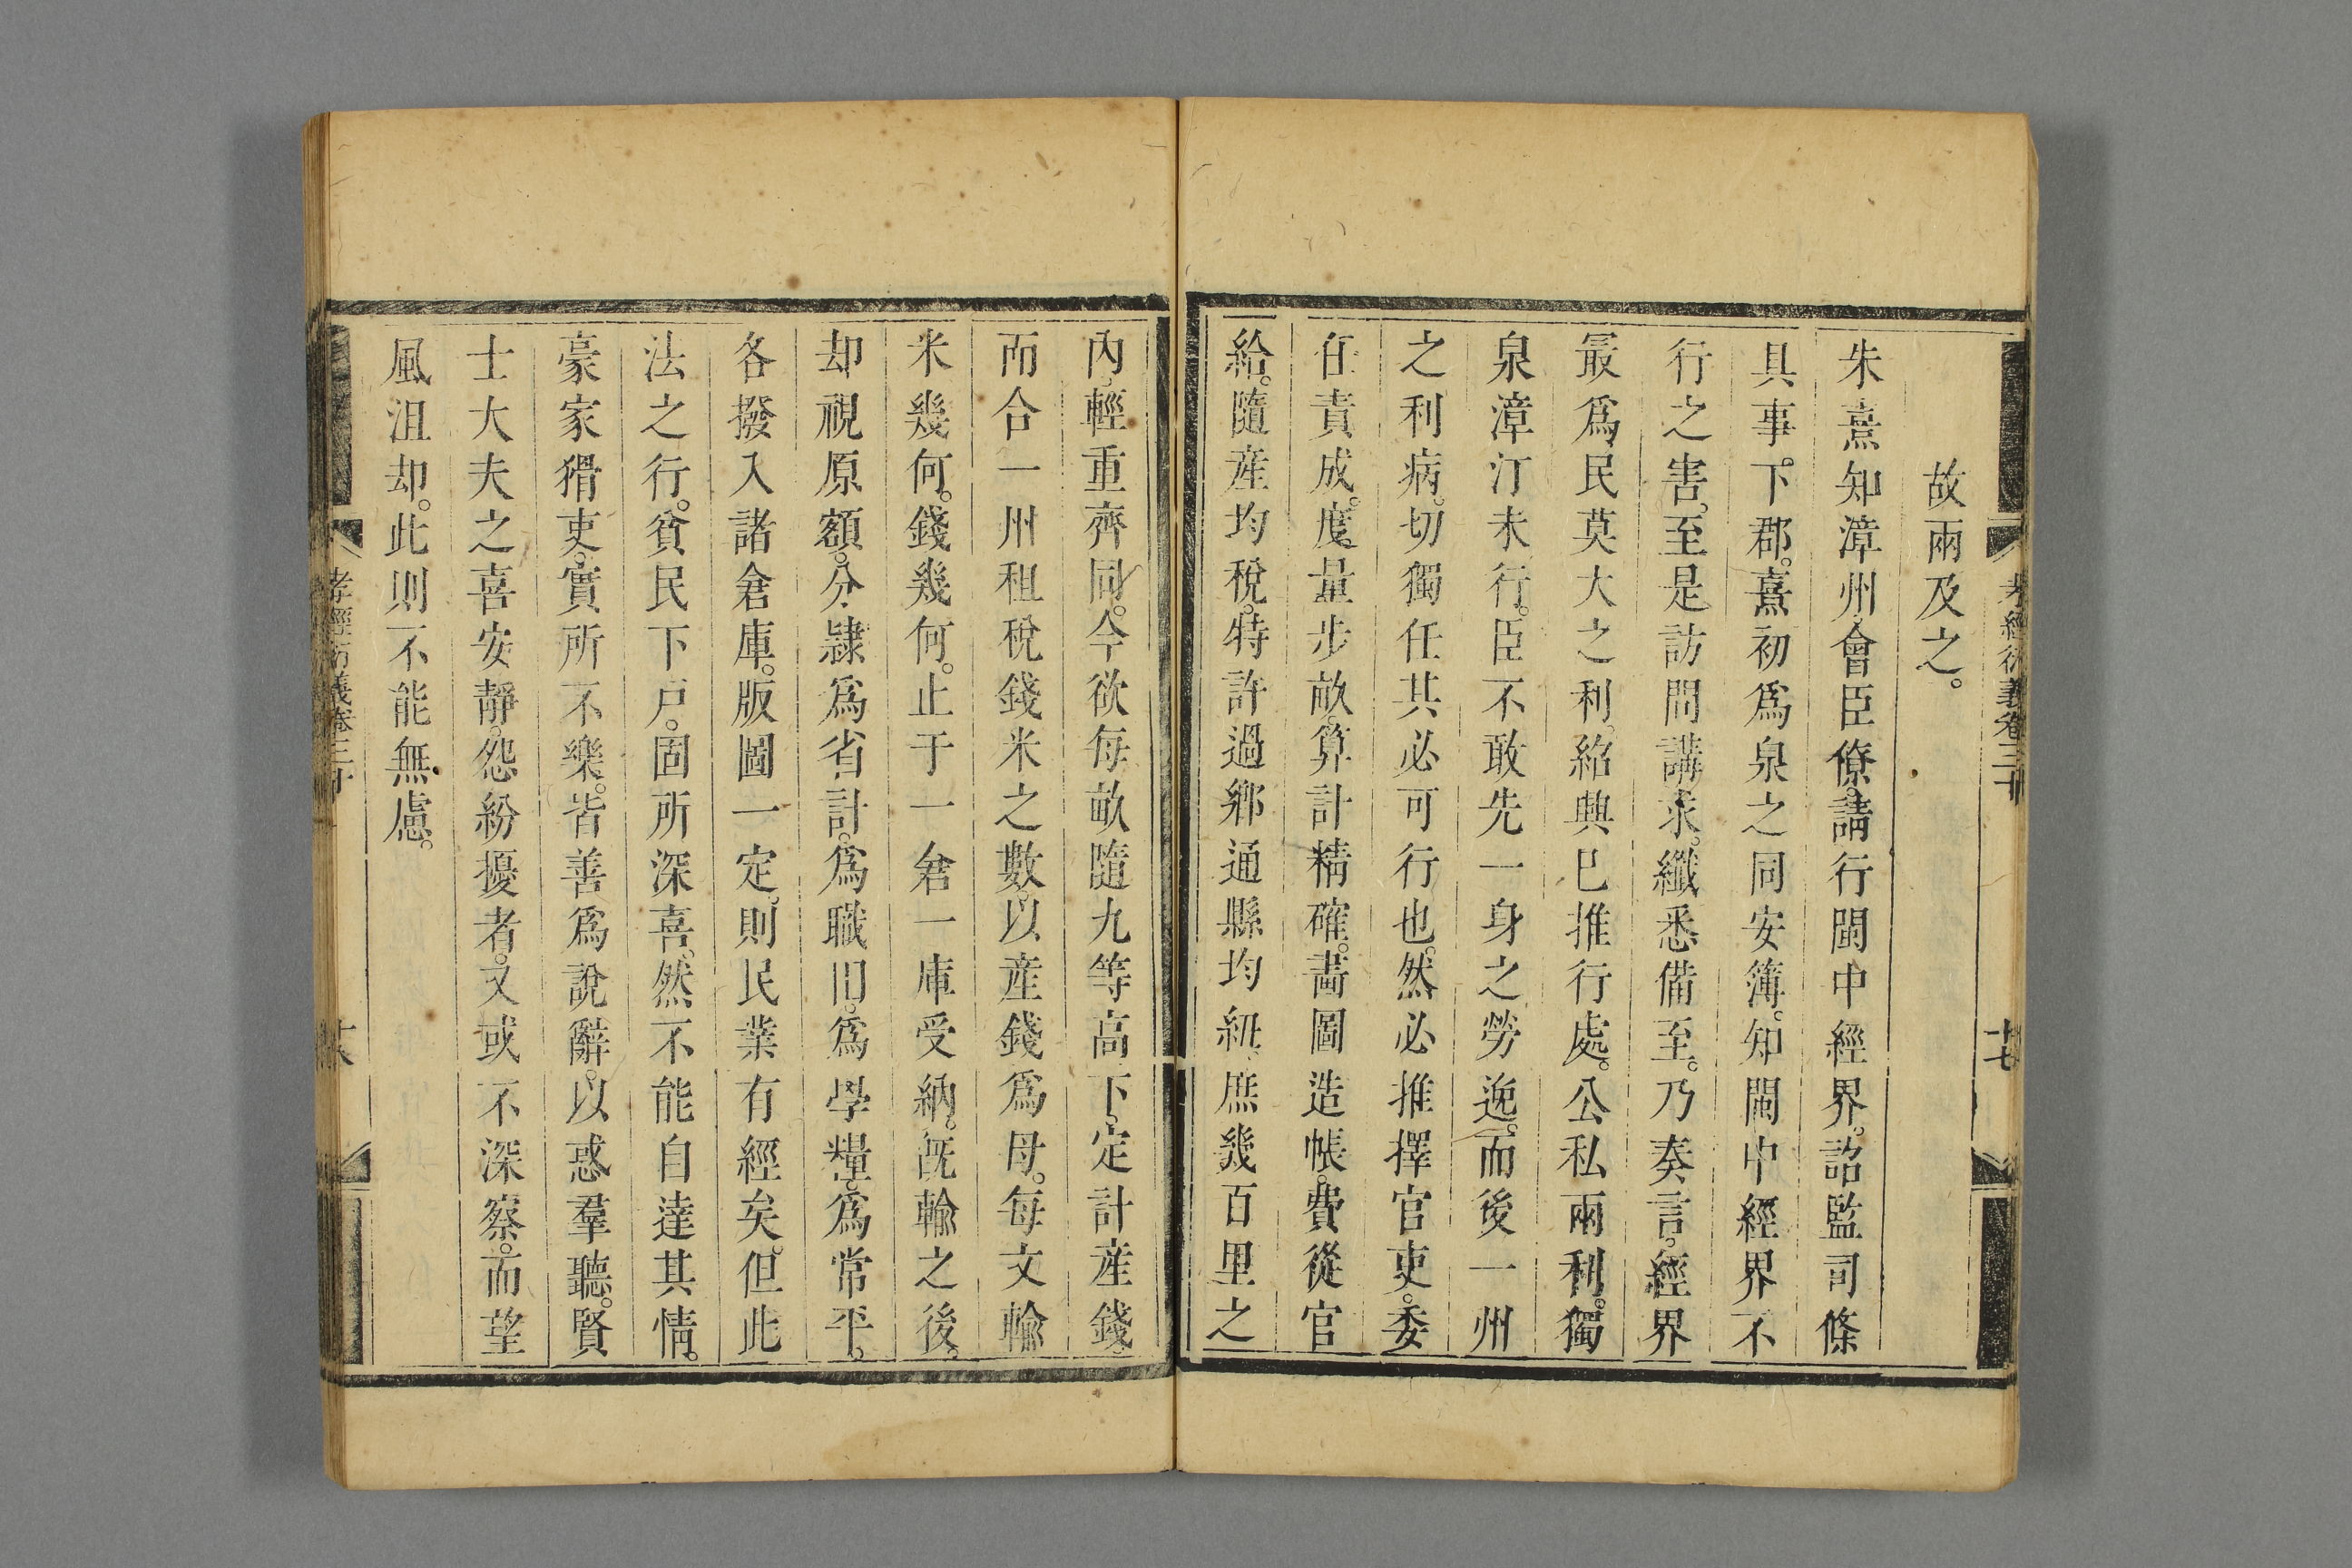 孝經衍義卷三十
十七
故兩及之。
朱熹知漳州、會臣僚請行閩中經界。詔監司條
具事。下郡。熹初爲泉之同安簿。知閩中經界不
行之害。至是訪問講求。纖悉備至。乃奏言。經界
最爲民莫大之利。紹興已推行處。公私兩利。獨
泉漳汀未行。臣不敢先一身之勞逸。而後一州
之利病。切獨任其必可行也。然必推擇官吏。委
任責成。度量步畝。算計精確。畵圖造帳。費從官
給。隨産均稅。特許過鄉通縣均紐、庶幾百里之
內、輕重齊同。今欲每畝隨九等高下、定計産錢、
而合一州租稅錢米之數。以産錢爲母。每文輸
米幾何。錢幾何。止于一倉一庫受納。旣輸之後。
却視原額。分隷爲省計。爲職田。爲學糧。爲常平。
各撥入諸倉庫。版圖一定。則民業有經矣。但此
法之行。貧民下戶。固所深喜。然不能自達其情。
豪家猾吏。實所不樂。皆善爲說辭。以惑羣聽。賢
士大夫之喜安靜。怨紛擾者。又或不深察。而望
風沮却。此則不能無慮。
孝經衍義卷三十
十八